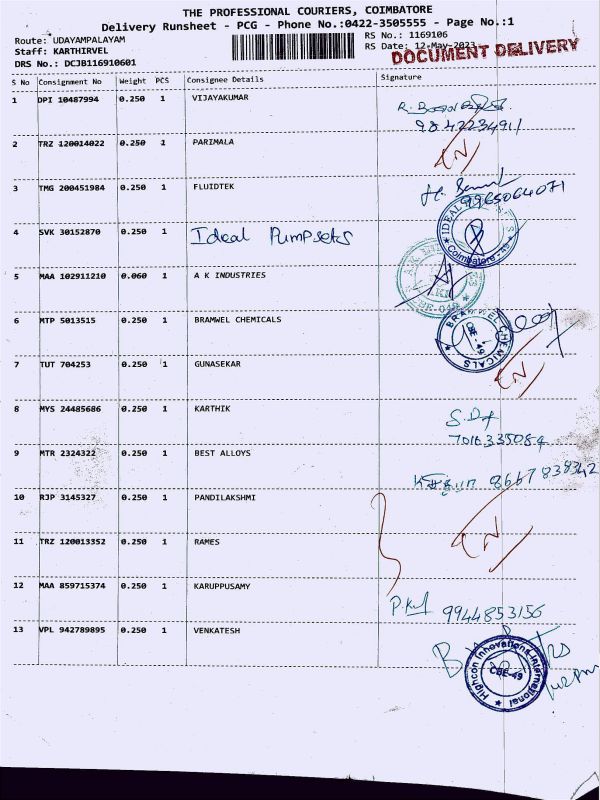 THE PROFESSIONAL COURIERS, COIMBATORE
Delivery Runsheet - PCG - Phone No.:0422-3505555 - Page No.:1
Route: UDAYAMPALAYAM RS No.: 1169106
Staff: KARTHIRVEL RS Date: 12-May-2023
DOCUMENT DELIVERY
DRS No.: DCJB116910601
S No Consignment No Weight PCS Consignee Details Signature
1 DPI 10487994 0.250 1 VIJAYAKUMAR
2 TRZ 120014022 0.250 1 PARIMALA
3 TMG 200451984 0.250 1 FLUIDTEK
9965064071
4 SVK 30152870 0.250 1 Ideal Pumpsets
IDEAL
Coimbatore - 49
5 MAA 102911210 0.060 1 A K INDUSTRIES
6 MTP 5013515 0.250 1 BRAMWEL CHEMICALS
CHEMICALS
7 TUT 704253 0.250 1 GUNASEKAR
8 MYS 24485686 0.250 1 KARTHIK
7016335084
9 MTR 2324322 0.250 1 BEST ALLOYS
8667838342
10 RJP 3145327 0.250 1 PANDILAKSHMI
11 TRZ 120013352 0.250 1 RAMES
12 MAA 859715374 0.250 1 KARUPPUSAMY
9944853156
13 VPL 942789895 0.250 1 VENKATESH
Highcon Innovations International
CBE-49